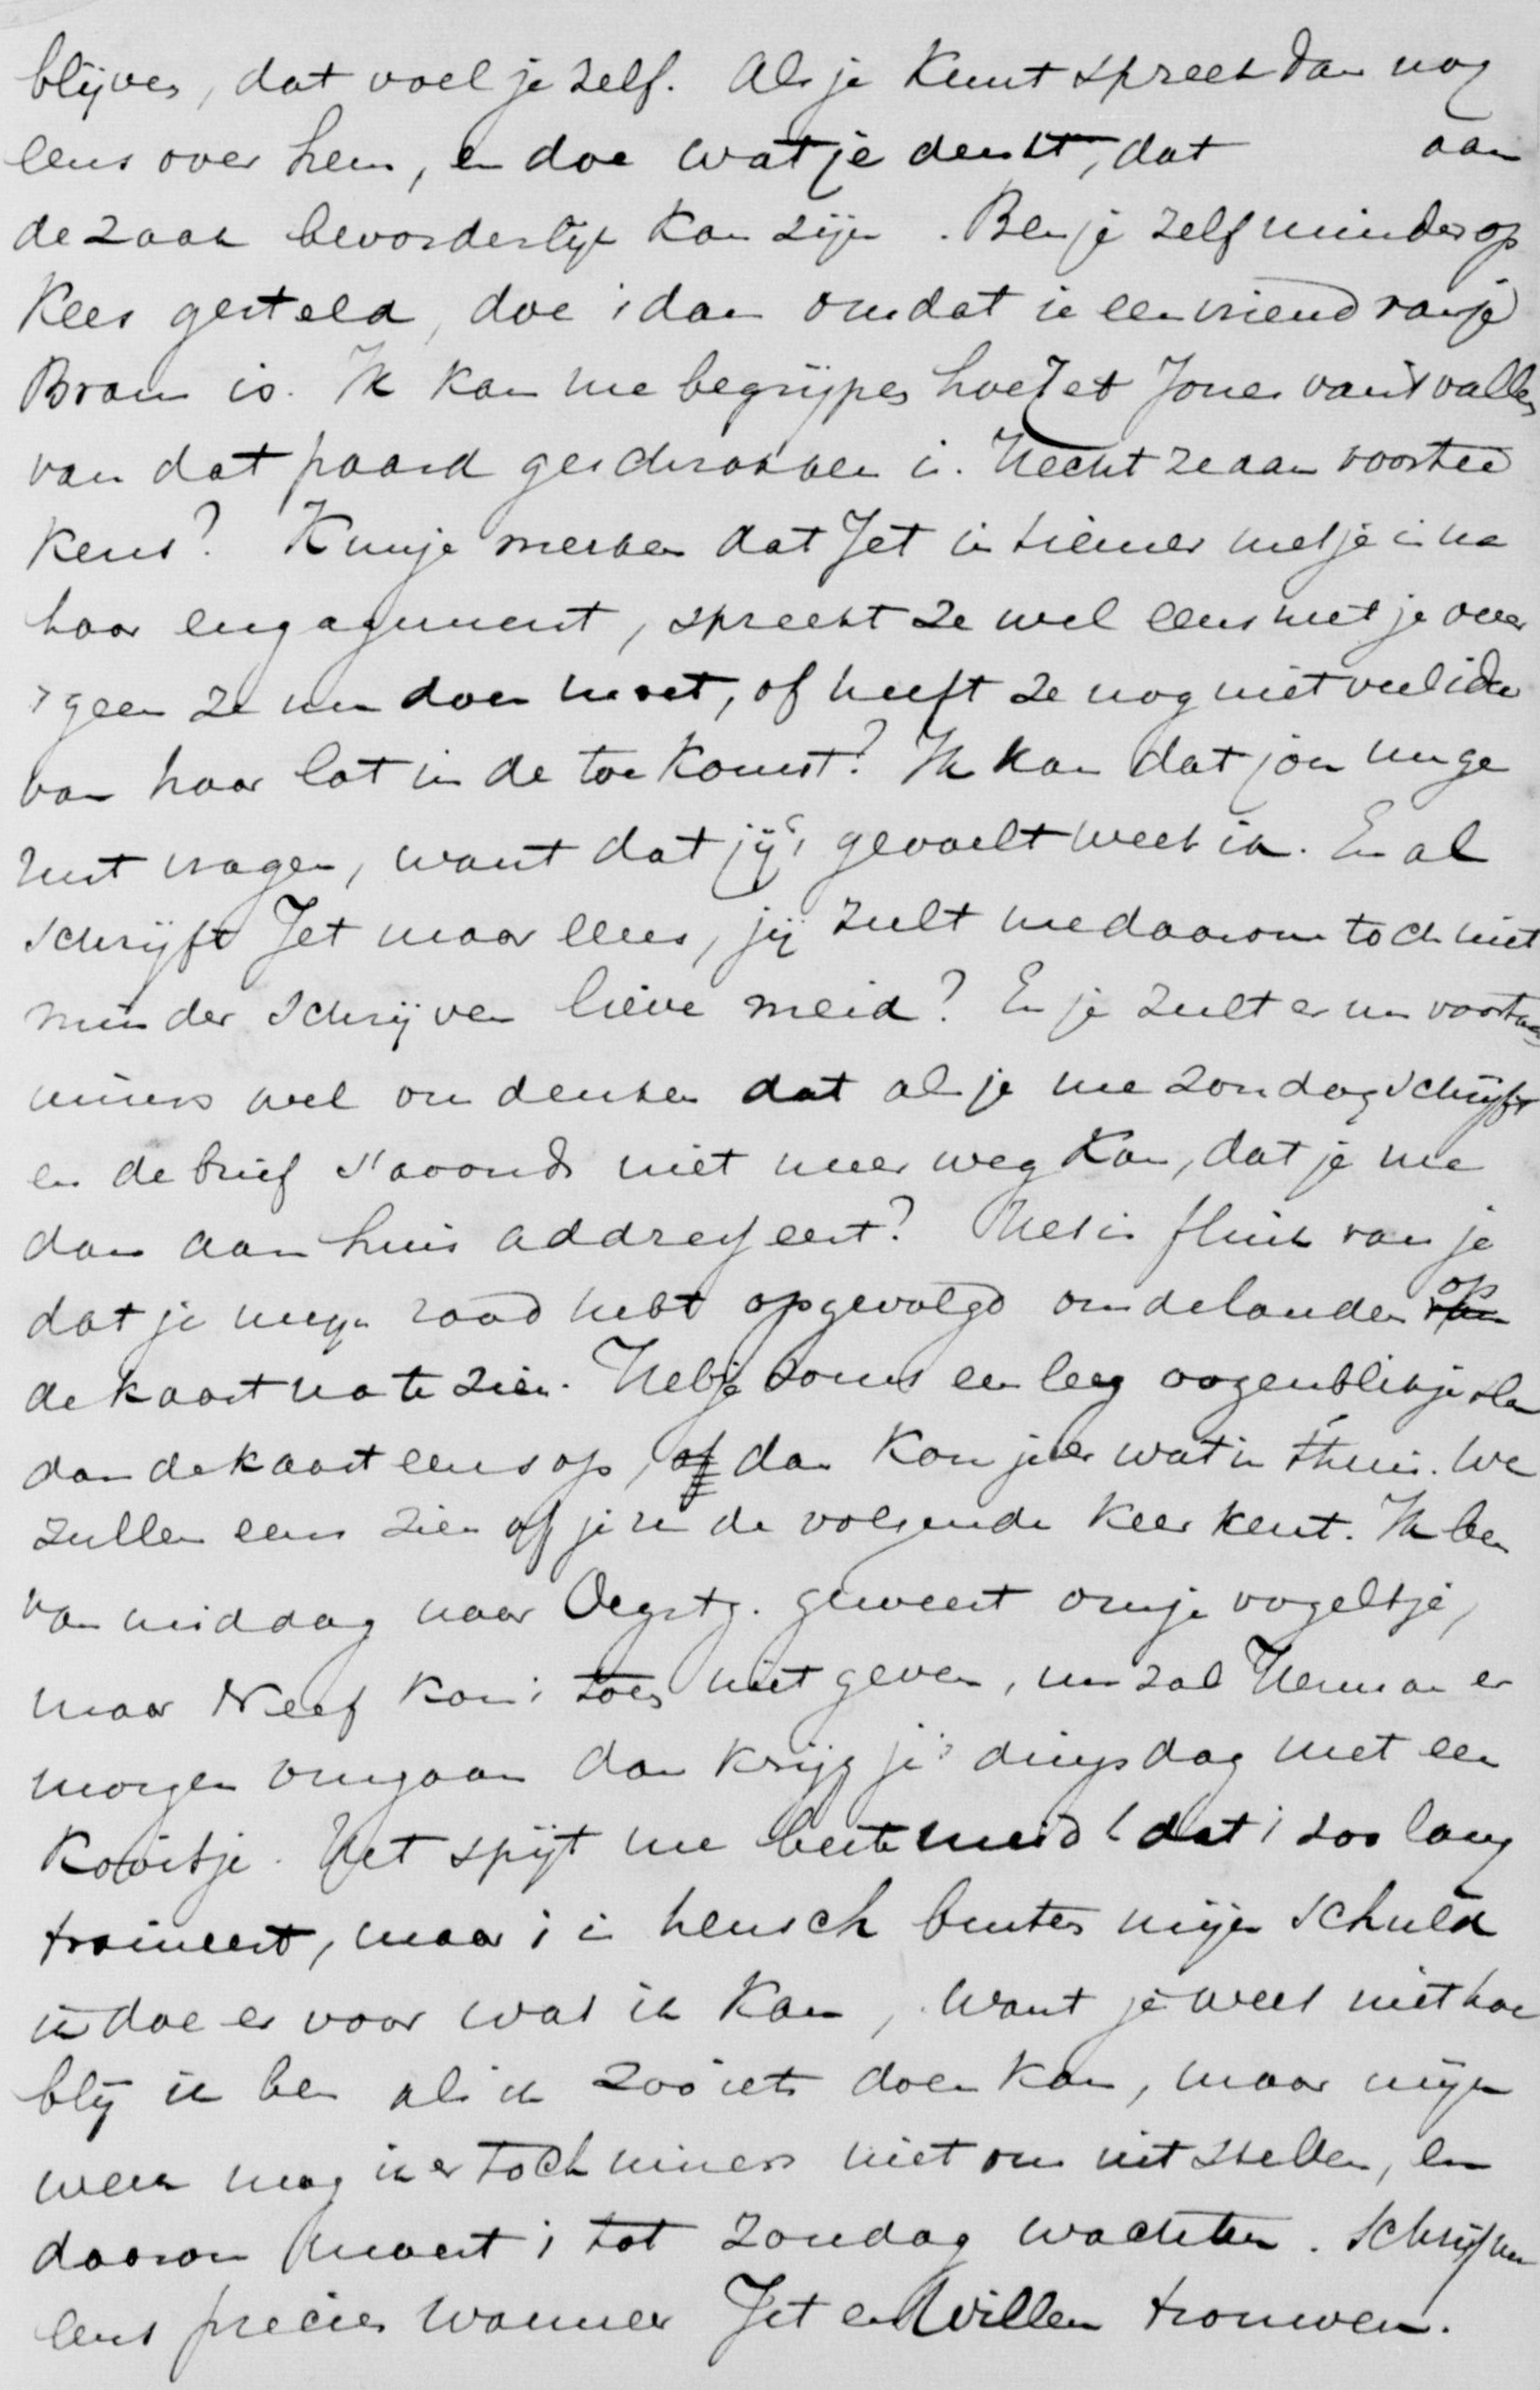 blijven, dat voel je zelf. Als je kunt spreek dan nog
eens over hem, en doe wat je denkt, dat aan
de zaak bevorderlijk kan zijn. Ben je zelf minder op
Kees gesteld, doe 't dan omdat ie een vriend van je
Bram is. Ik kan me begrijpen hoe Jet Jones van 't vallen
van dat paard geschrokken is. Hecht ze aan voortee
kens? Kun je merken dat Jet intiemer met je is na
haar engagement, spreekt ze wel eens met je over
't geen ze nu doen moet, of heeft ze nog niet veel idee
van haar lot in de toekomst? Ik kan dat jou nu ge
rust vragen, want dat jij 't gevoelt weet ik. En al
schrijft Jet maar eens, jij zult me daarom toch niet
minder schrijven lieve meid? En je zult er nu voortaan
immers wel om denken dat als je me zondag schrijft
en de brief s'avonds niet meer weg kan, dat je me
dan aan huis addresseert? Het is flink van je
dat je mijn raad hebt opgevolgd om de landen op
de kaart na te zien. Heb je soms een leeg oogenblikje sla
dan de kaart eens op, dan kom je er wat in thuis. We
zullen eens zien of je ze de volgende keer kent. Ik ben
van middag naar Oegstg. geweest om je vogeltje,
maar Neef kon 't toen niet geven, nu zal Herman er
morgen omgaan dan krijg je 't dingsdag met een
kooitje. Het spijt me beste meid dat 't zoo lang
traineert, maar 't is heusch buiten mijn schuld
ik doe er voor wat ik kan, want je weet niet hoe
blij ik ben als ik zoo iets doen kan, maar mijn
werk mag ik er toch immers niet om uitstellen, en
daarom moest 't tot zondag wachten. Schrijf me
eens precies wanneer Jet en Willem trouwen.